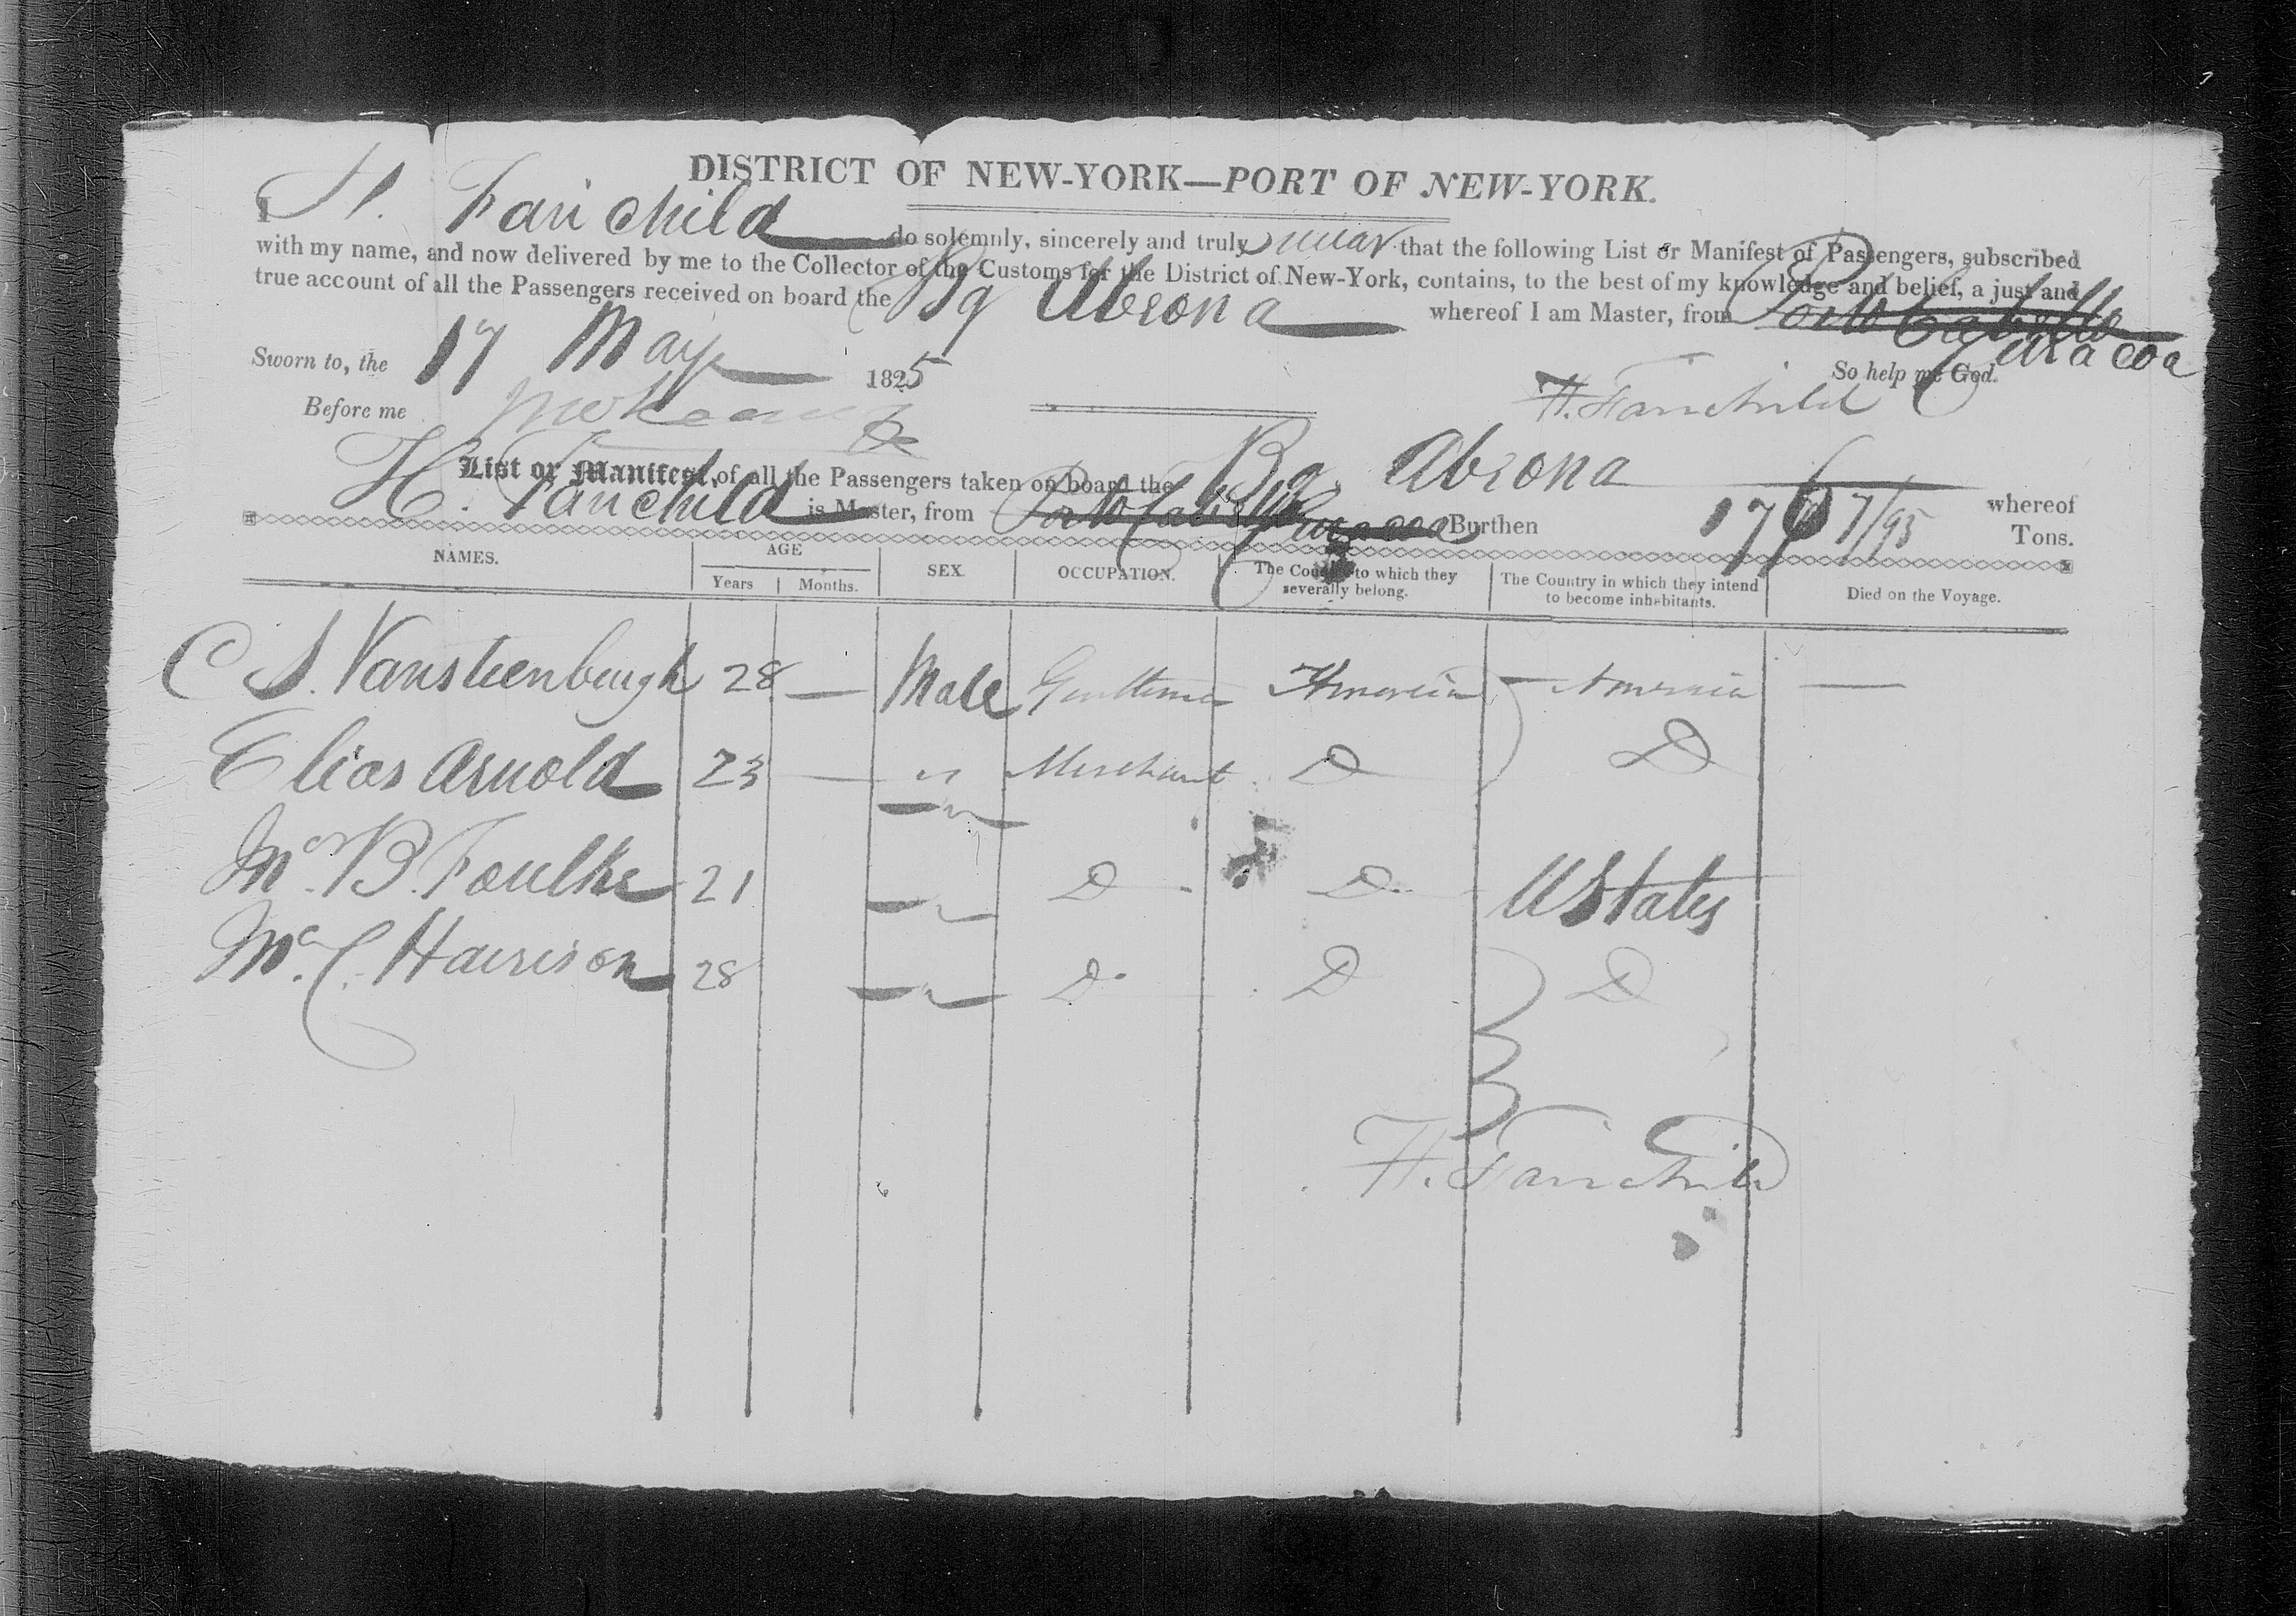 DISTRICT OF NEW-YORK—PORT OF NEW-YORK.
I H. Fairchild do solemnly, sincerely and truly swear that the following List or Manifest of Passengers, subscribed
with my name, and now delivered by me to the Collector of the Customs for the District of New-York, contains, to the best of my knowledge and belief, a just and
true account of all the Passengers received on board the Bg Abrona whereof I am Master, from Porto Cabello Curacoa
Sworn to, the 17 May 1825 So help me God.
Before me H. Fairchild
List or Manifest, of all the Passengers taken on board the Bg. Abrona whereof
H. Fairchild is Master, from Porto Cabello Curacoa Burthen Tons.
NAMES. AGE Years Months. SEX. OCCUPATION. The Country to which they severally belong. The Country in which they intend to become inhabitants. Died on the Voyage.
C S. Vansteenburgh 28 — Male Gentleman America America —
Elias Arnold 23 — " Merchant D D
Mr. B. Foulke 21 " D D U States
Mr. C. Harrison 28 " D D D
H. Fairchild